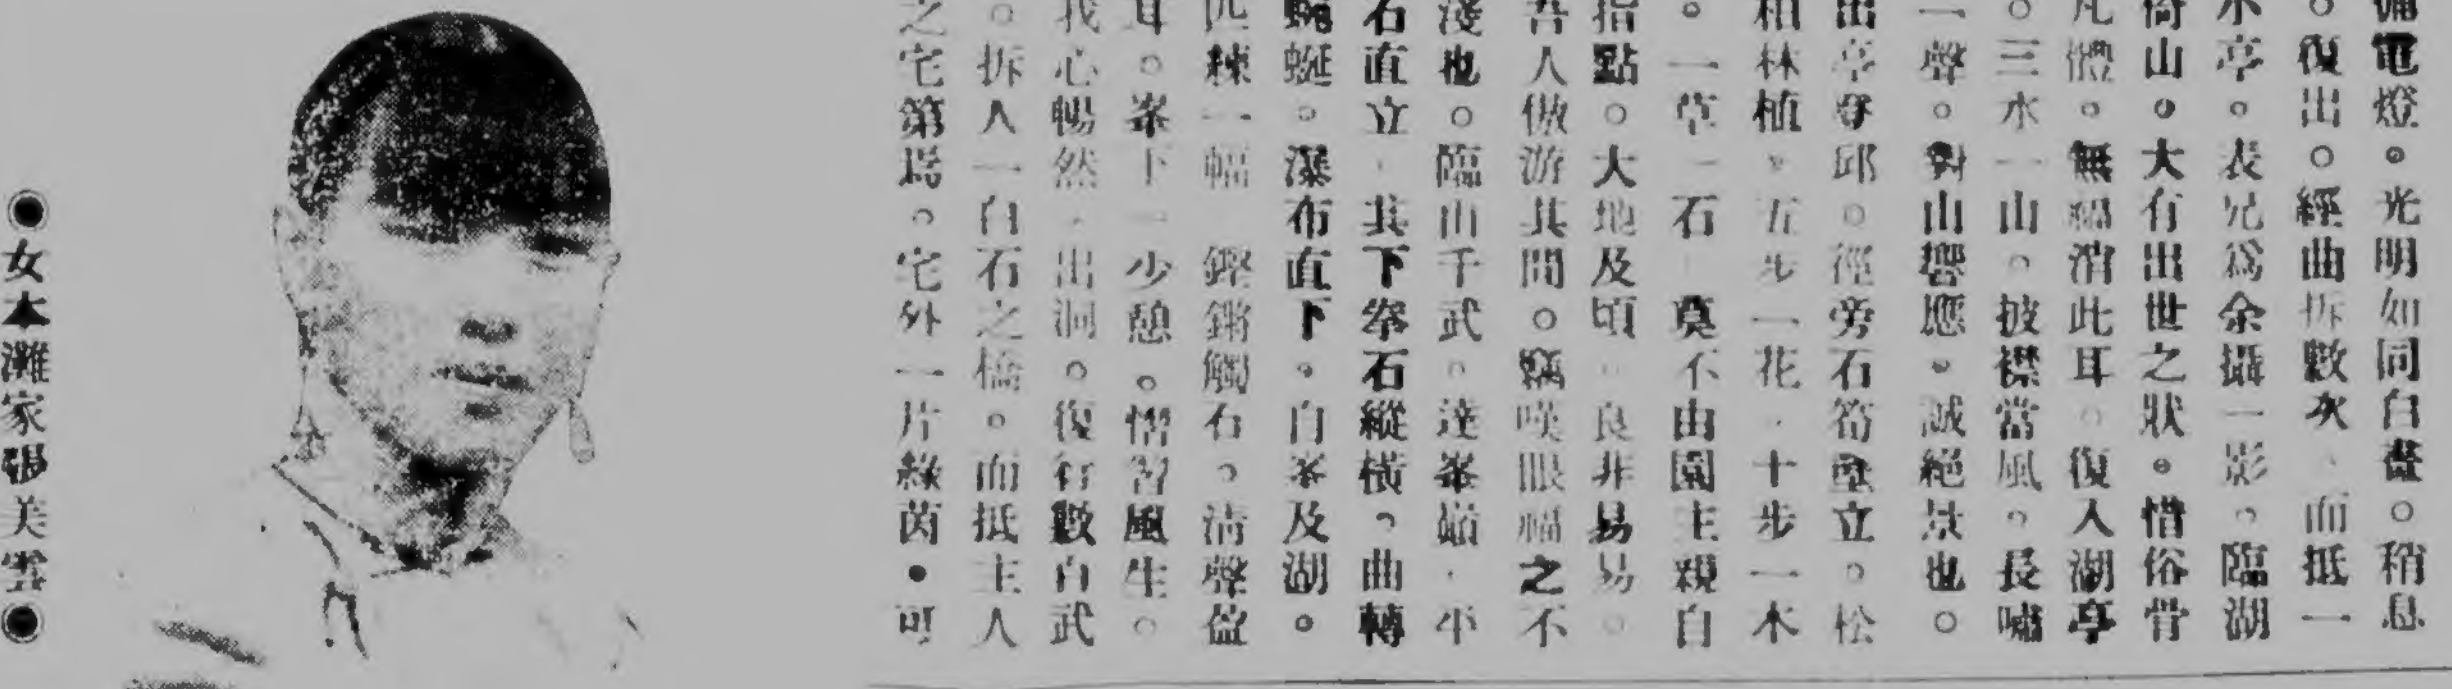 備電燈。光明如同白晝。稍息
。復出。經曲折數次、而抵一
水亭。表兄爲余攝一影。臨湖
倚山。大有出世之狀。惜俗骨
凡體。無福消此耳。復入湖亭
。三水一山。披襟當風。長嘯
一聲。對山響應。誠絕景也。
出亭尋邱。徑旁石筍壁立。松
柏林植。五步一花、十步一木
。一草一石 莫不由園主親自
指點。大地及頃。良非易易。
吾人倣游其間。竊嘆眼福之不
淺也。臨山千武。達峯巔、小
石直立、其下峯石縱橫。曲轉
蜿蜒。瀑布直下。自峯及湖。
匹練一幅 鏗鏘觸石。清聲盈
耳。峯下一少憩。習習風生。
我心暢然、出洞。復行數百武
。拆人一白石之橋。而抵主人
之宅第焉。宅外一片綠茵。可
●女本灘家張美雲●